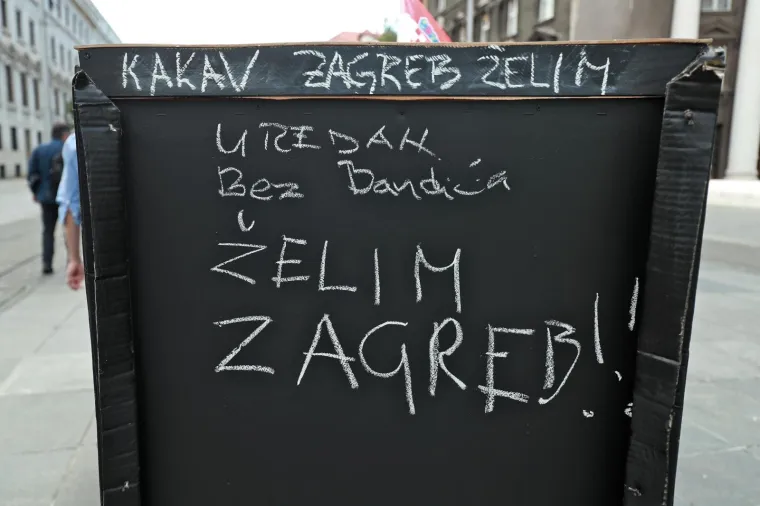 KAKAV ZAGREB ŽELIM
UREDAN
Bez Bandića
ŽELIM
ZAGREB!!